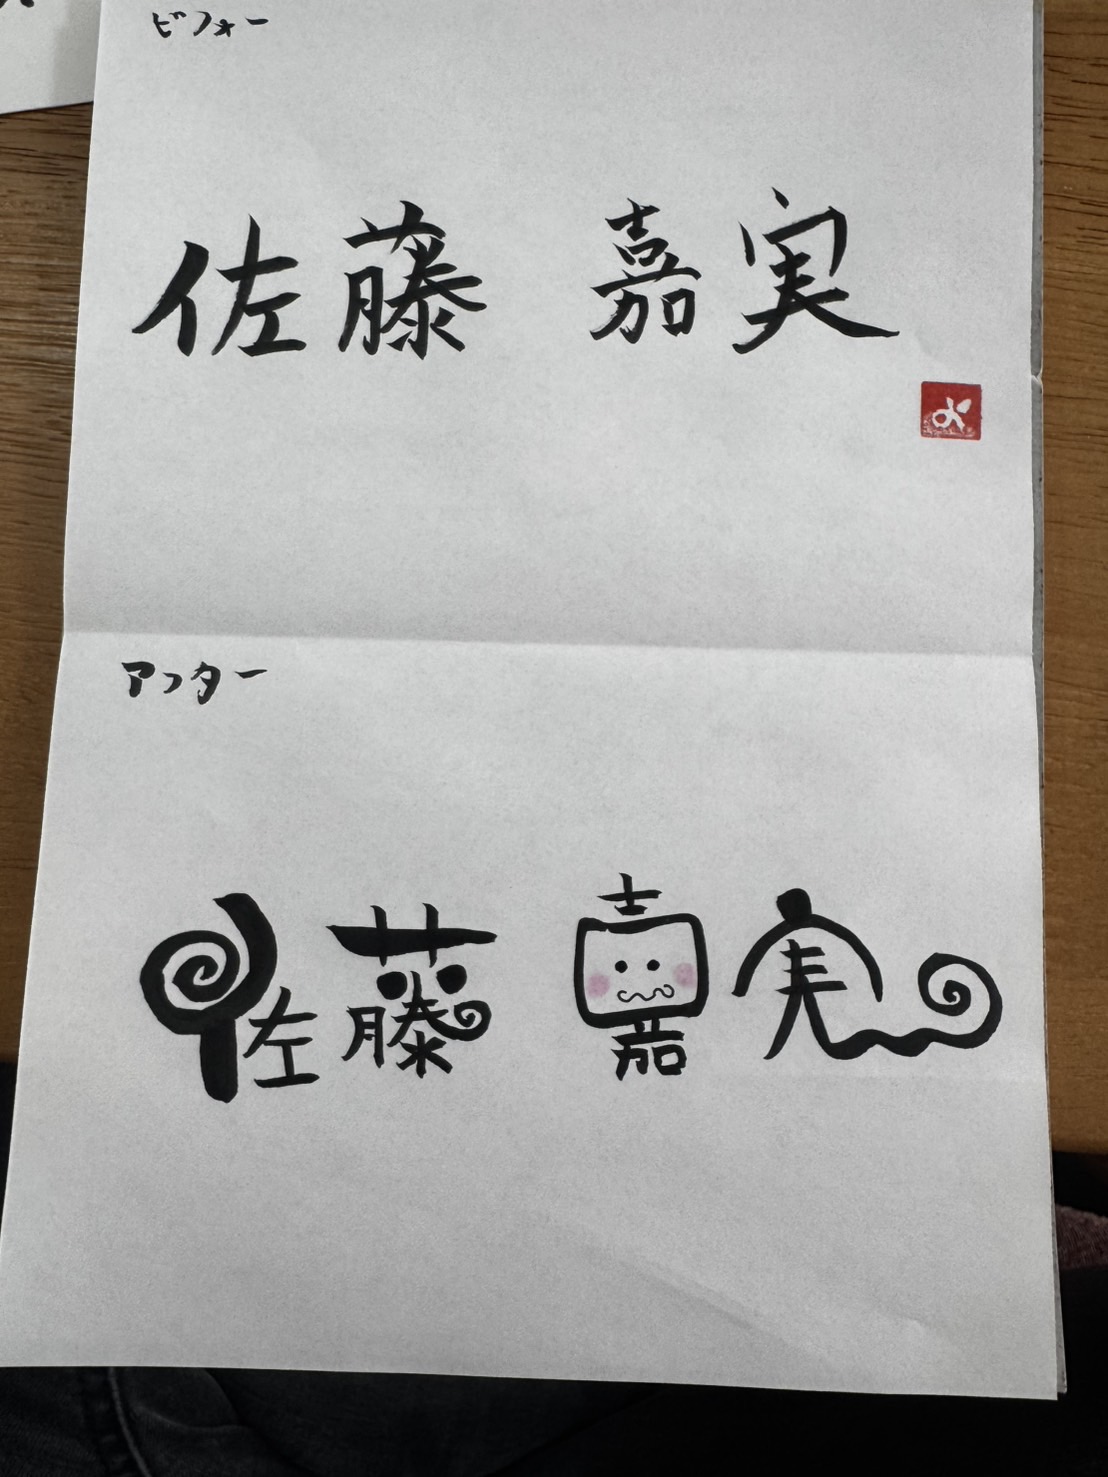 ビフォー
佐藤 嘉実
アフター
佐藤 嘉実